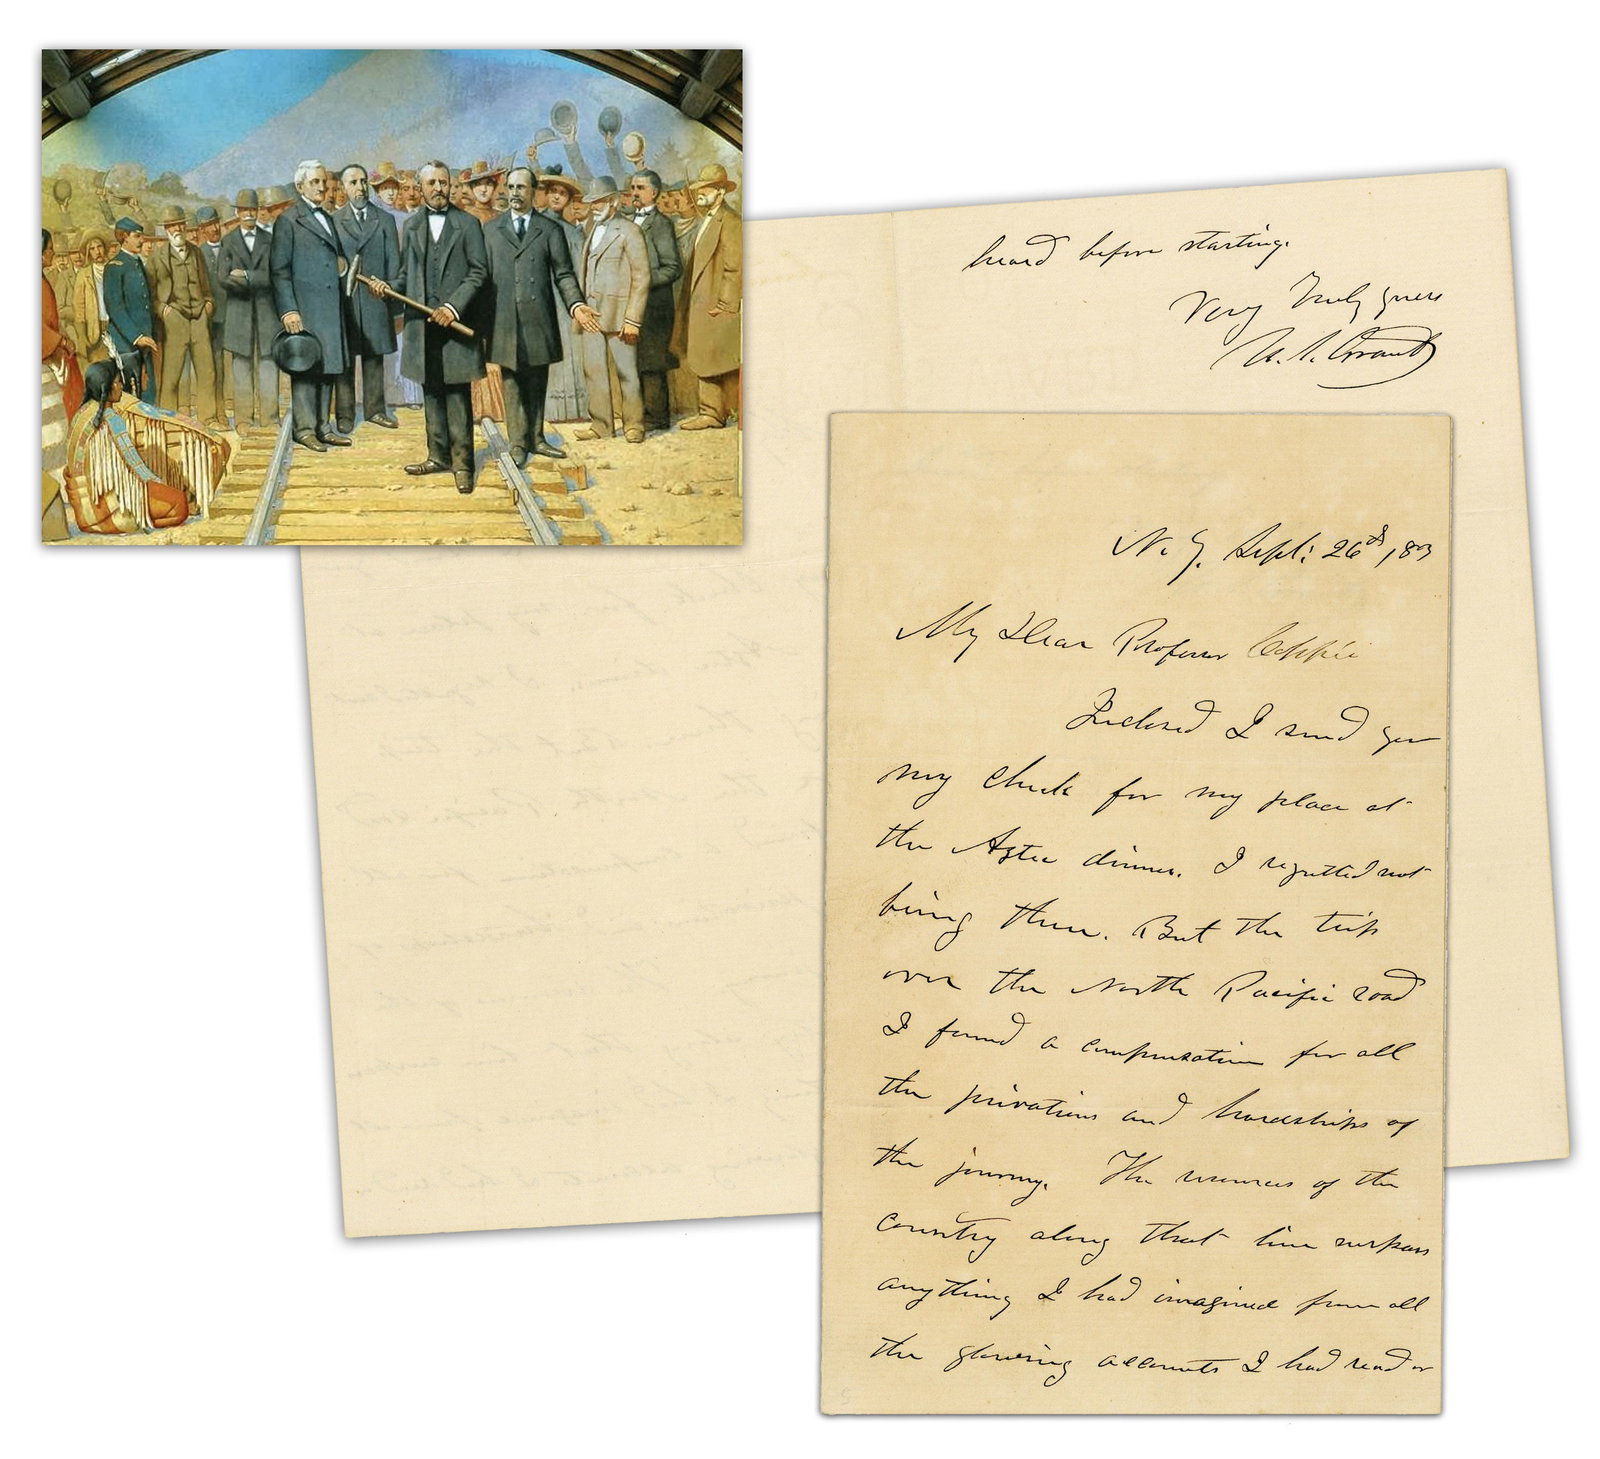 N. Y. Sept: 26th, 183
My Dear Professor Coppée
Inclosed I send you
my check for my place at
the Aztec dinner. I regretted not
being there. But the trip
over the North Pacific road
I found a compensation for all
the privations and hardships of
the journey. The resources of the
country along that line surpass
anything I had imagined from all
the glowing accounts I had read or
heard before starting.
Very Truly yours
U. S. Grant